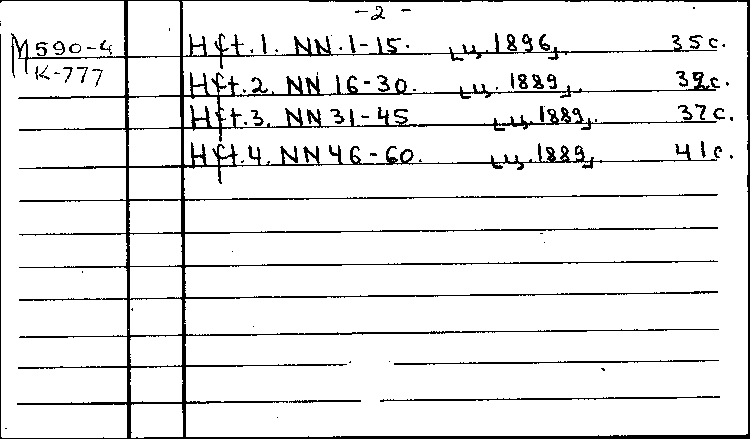 -2-
M 590-4
K-777
Hft.1. NN.1-15. [ц.1896]. 35с.
Hft.2. NN 16-30. [ц.1889]. 39с.
Hft.3. NN 31-45 [ц.1889]. 37с.
Hft.4. NN 46-60. [ц.1889]. 41с.